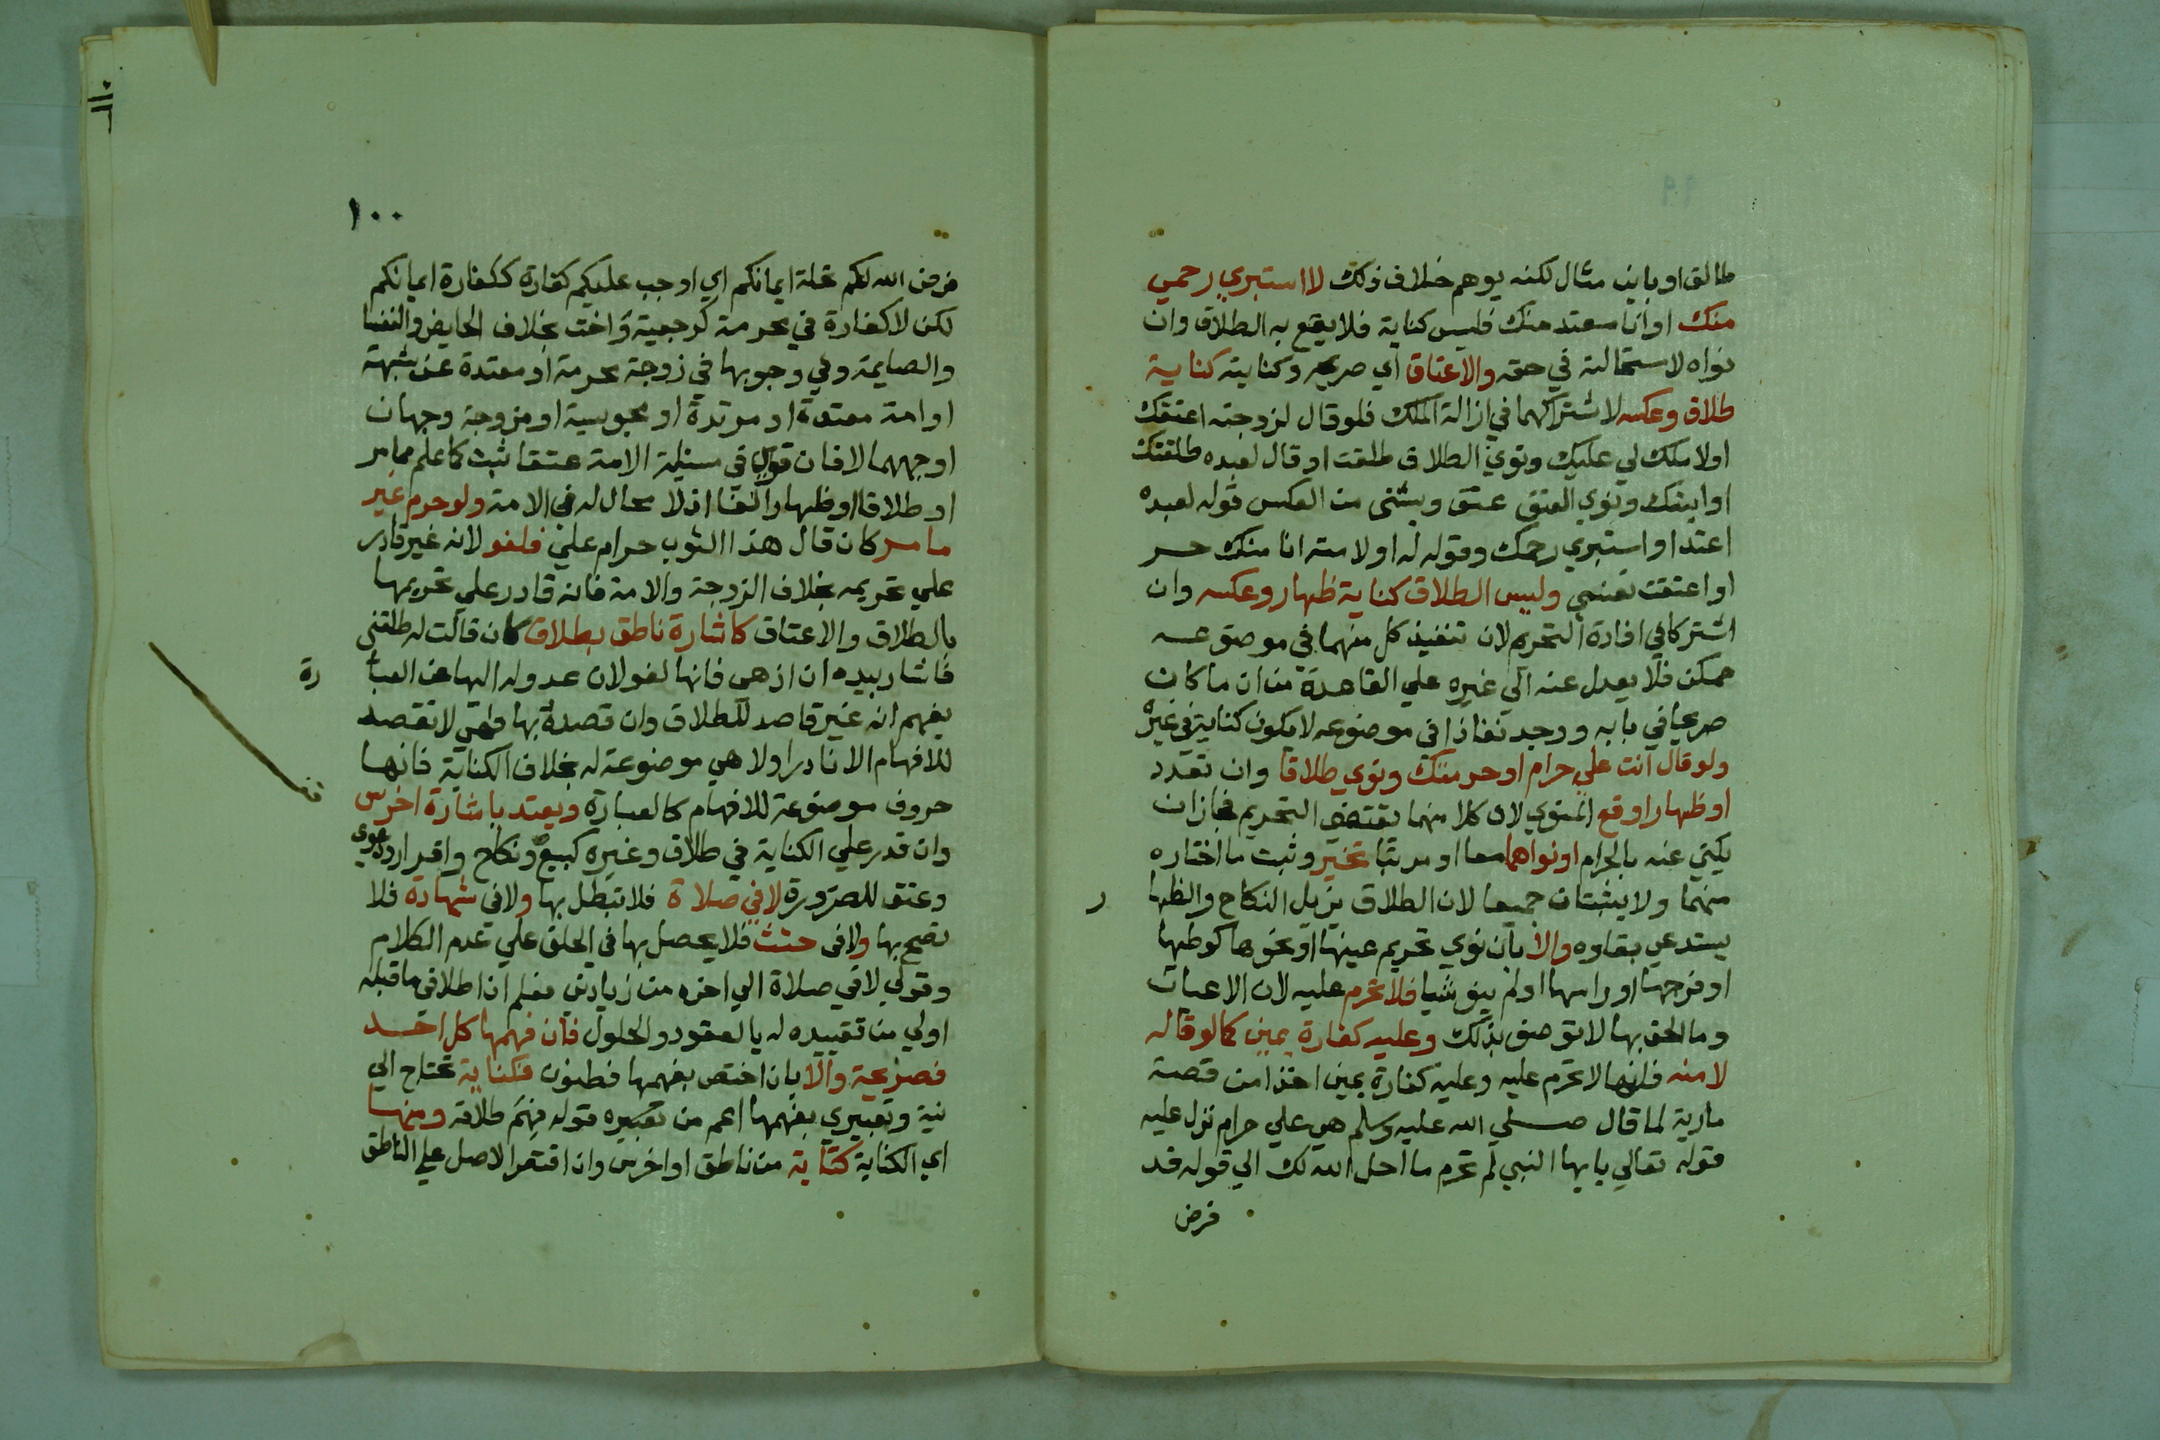 طالق او باين مثال لكنه يوهم خلاف ذلك لا استبري رحمي
منك او انا معتد منك فليس كناية فلا يقع به الطلاق وان
نواه لاستحالته في حقه والاعتاق اي صريحه وكنايته كناية
طلاق وعكسه لاشتراكهما في ازالة الملك فلو قال لزوجته اعتقتك
اولا ملك لي عليك ونوي الطلاق طلقت او قال لعبده طلقتك
او ابنتك ونوي العتق عتق ويستثنى من العكس قوله لعبده
اعتد او استبري رحمك وقوله له اولامته انا منك حر
او اعتقت نفسي وليس الطلاق كناية ظهار وعكسه وان
اشتركا في افادة التحريم لان تنفيذ كل منهما في موضوعه
ممكن فلا يعدل عنه الي غيره علي القاعدة من ان ما كان
صريحا في بابه ووجد نفاذا في موضوعه لا يكون كناية في غيره
ولو قال انت علي حرام او حرمتك ونوي طلاقا وان تعدد
او ظهارا وقع المنوي لان كلا منهما يقتضي التحريم فجاز ان
يكني عنه بالحرام او نواهما معا او مرتبا تخير وثبت ما اختاره
منهما ولا يثبتان جميعا لان الطلاق يزيل النكاح والظها
ر
يستدعي بقاوه والا بان نوي تحريم عينها او نحوها كوطيها
او فرجها او راسها او لم ينو شيا فلا تحرم عليه لان الاعيان
وما الحق بها لا توصف بذلك وعليه كفارة يمين كما لو قاله
لامته فانها لا تحرم عليه وعليه كفارة يمين اخذا من قصة
مارية لما قال صلي الله عليه وسلم هي علي حرام نزل عليه
قوله تعالي يايها النبي لم تحرم ما احل الله لك الي قوله قد
فرض
١٠٠
فرض الله لكم تحلة ايمانكم اي اوجب عليكم كفارة ككفارة ايمانكم
لكن لا كفارة في محرمة كرجعية واخت بخلاف الحايض والنفسا
والصايمة وفي وجوبها في زوجة محرمة او معتدة عن شبهة
او امة معتدة او مرتدة او مجوسية او مزوجة وجهان
اوجههما لا فان نوي في مسئلة الامة عتقا ثبت كما علم مما مر
او طلاقا او ظهارا لغا اذ لا مجال له في الامة ولو حرم غير
ما مر كان قال هذا الثوب حرام علي فلغو لانه غير قادر
علي تحريمه بخلاف الزوجة والامة فانه قادر علي تحريمها
بالطلاق والاعتاق كاشارة ناطق بطلاق كان قالت له طلقني
فاشار بيده ان اذهبي فانها لغو لان عدوله اليها عن العبا
رة
يفهم انه غير قاصد للطلاق وان قصده بها فهي لا تقصد
للافهام الا نادرا ولا هي موضوعة له بخلاف الكتابة فانها
حروف موضوعة للافهام كالعبارة ويعتد باشارة اخرس
وان قدر علي الكتابة في طلاق وغيره كبيع ونكاح واقرار ودعوي
وعتق للضرورة لا في صلاة فلا تبطل بها ولا في شهادة فلا
تصح بها ولا في حنث فلا يحصل بها في الحلف علي عدم الكلام
وقولي لا في صلاة الي اخره من زيادتي فعلم ان اطلاقي ما قبله
اولي من تقييده له بالعقود والحلول فان فهمها كل احد
فصريحة والا بان اختص بفهمها فطنون فكناية تحتاج الي
نية وتعبيري بفهمها اعم من تعبيره قوله فهم طلاقه ومنها
اي الكناية كتابة من ناطق او اخرس وان اقتصر الاصل علي الناطق